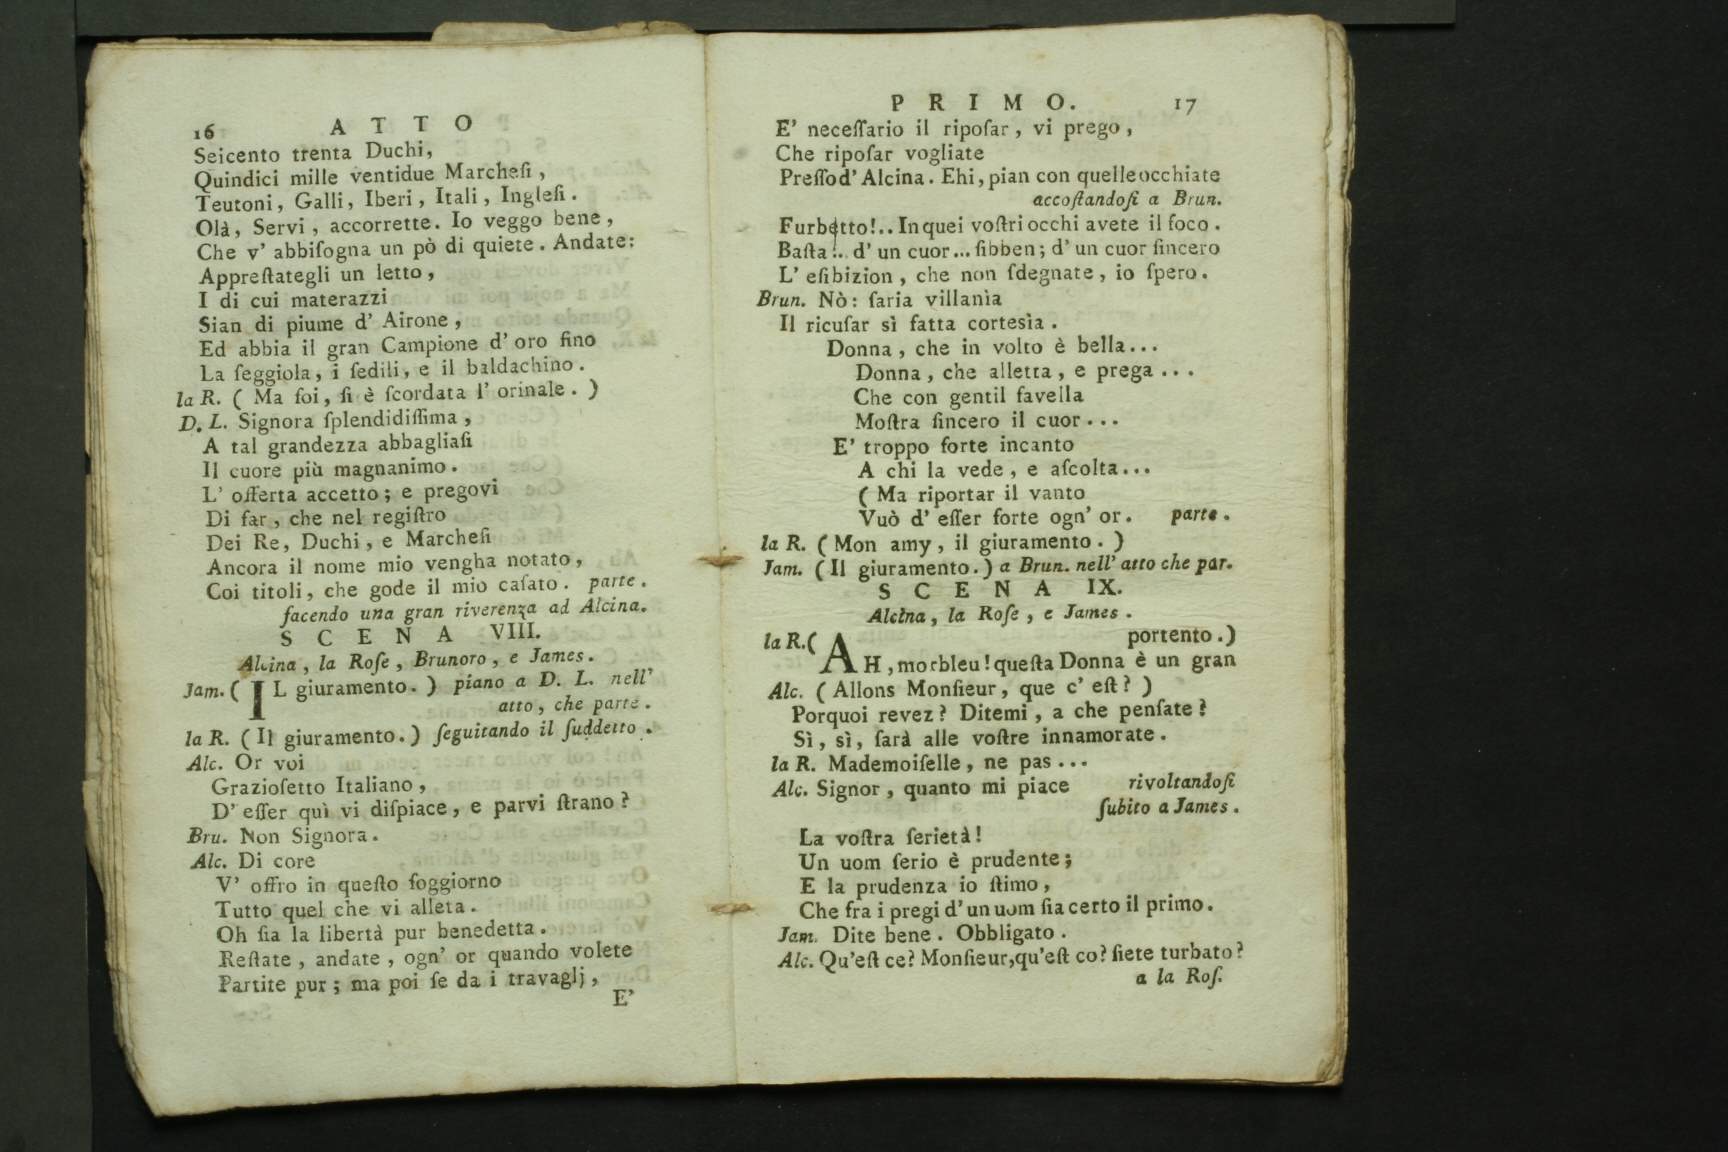 16 ATTO
Seicento trenta Duchi,
Quindici mille ventidue Marcheſi,
Teutoni, Galli, Iberi, Itali, Ingleſi.
Olà, Servi, accorrette. Io veggo bene,
Che v' abbiſogna un pò di quiete. Andate:
Appreſtategli un letto,
I di cui materazzi
Sian di piume d' Airone,
Ed abbia il gran Campione d' oro fino
La ſeggiola, i ſedili, e il baldachino.
la R. ( Ma foi, ſi è ſcordata l' orinale. )
D. L. Signora ſplendidiſſima,
A tal grandezza abbagliaſi
Il cuore più magnanimo.
L' offerta accetto; e pregovi
Di far, che nel regiſtro
Dei Re, Duchi, e Marcheſi
Ancora il nome mio vengha notato,
Coi titoli, che gode il mio caſato. parte.
facendo una gran riverenza ad Alcina.
SCENA VIII.
Alcina, la Roſe, Brunoro, e James.
Jam. ( IL giuramento. ) piano a D. L. nell'
atto, che parte.
la R. ( Il giuramento. ) ſeguitando il ſuddetto.
Alc. Or voi
Grazioſetto Italiano,
D' eſſer quì vi diſpiace, e parvi ſtrano?
Bru. Non Signora.
Alc. Di core
V' offro in queſto ſoggiorno
Tutto quel che vi alleta.
Oh ſia la libertà pur benedetta.
Reſtate, andate, ogn' or quando volete
Partite pur; ma poi ſe da i travaglj,
E'
PRIMO. 17
E' neceſſario il ripoſar, vi prego,
Che ripoſar vogliate
Preſſo d' Alcina. Ehi, pian con quelle occhiate
accoſtandoſi a Brun.
Furbetto!.. In quei voſtri occhi avete il foco.
Baſta!.. d' un cuor... ſibben; d' un cuor ſincero
L' eſibizion, che non ſdegnate, io ſpero.
Brun. Nò: ſaria villanìa
Il ricuſar sì fatta cortesìa.
Donna, che in volto è bella...
Donna, che alletta, e prega...
Che con gentil favella
Moſtra ſincero il cuor...
E' troppo forte incanto
A chi la vede, e aſcolta...
( Ma riportar il vanto
Vuò d' eſſer forte ogn' or. parte.
la R. ( Mon amy, il giuramento. )
Jam. ( Il giuramento. ) a Brun. nell' atto che par.
SCENA IX.
Alcina, la Roſe, e James.
la R. ( portento. )
AH, morbleu! queſta Donna è un gran
Alc. ( Allons Monſieur, que c' eſt? )
Porquoi revez? Ditemi, a che penſate?
Sì, sì, ſarà alle voſtre innamorate.
la R. Mademoiſelle, ne pas...
Alc. Signor, quanto mi piace rivoltandoſi
ſubito a James.
La voſtra ſerietà!
Un uom ſerio è prudente;
E la prudenza io ſtimo,
Che fra i pregi d' un uom ſia certo il primo.
Jam. Dite bene. Obbligato.
Alc. Qu'eſt ce? Monſieur, qu'eſt co? ſiete turbato?
a la Roſ.